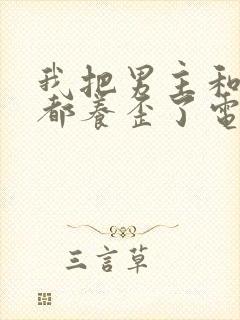 我把男主和
都养歪了电
三言草